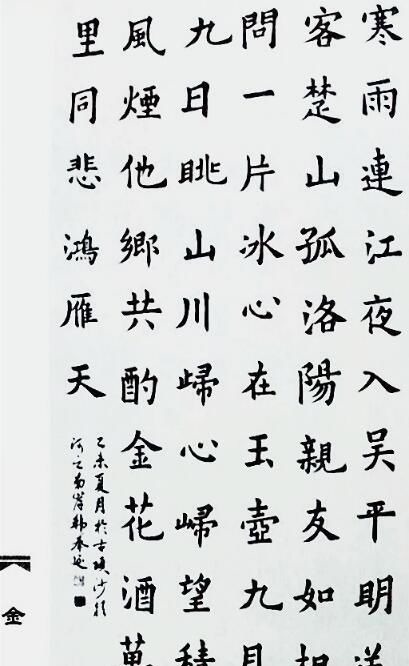 寒雨連江夜入吳平明送
客楚山孤洛陽親友如相
問一片冰心在玉壺九月
九日眺山川歸心歸望積
風煙他鄉共酌金花酒萬
里同悲鴻雁天
乙未夏月於古項沙
河之南岸韓春
金